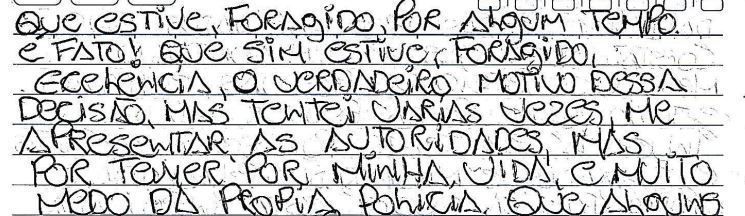 QUE ESTIVE, FORAGIDO, POR ALGUM TEMPO.
E FATO! QUE SIM ESTIVE, FORAGIDO,
ECELENCIA, O VERDADEIRO MOTIVO DESSA
DECISÃO, MAS TENTEI VARIAS VEZES, ME
APRESENTAR, AS AUTORIDADES, MAS
POR TEMER, POR MINHA, VIDA, E MUITO
MEDO DA PROPIA, POLICIA, QUE ALGUNS